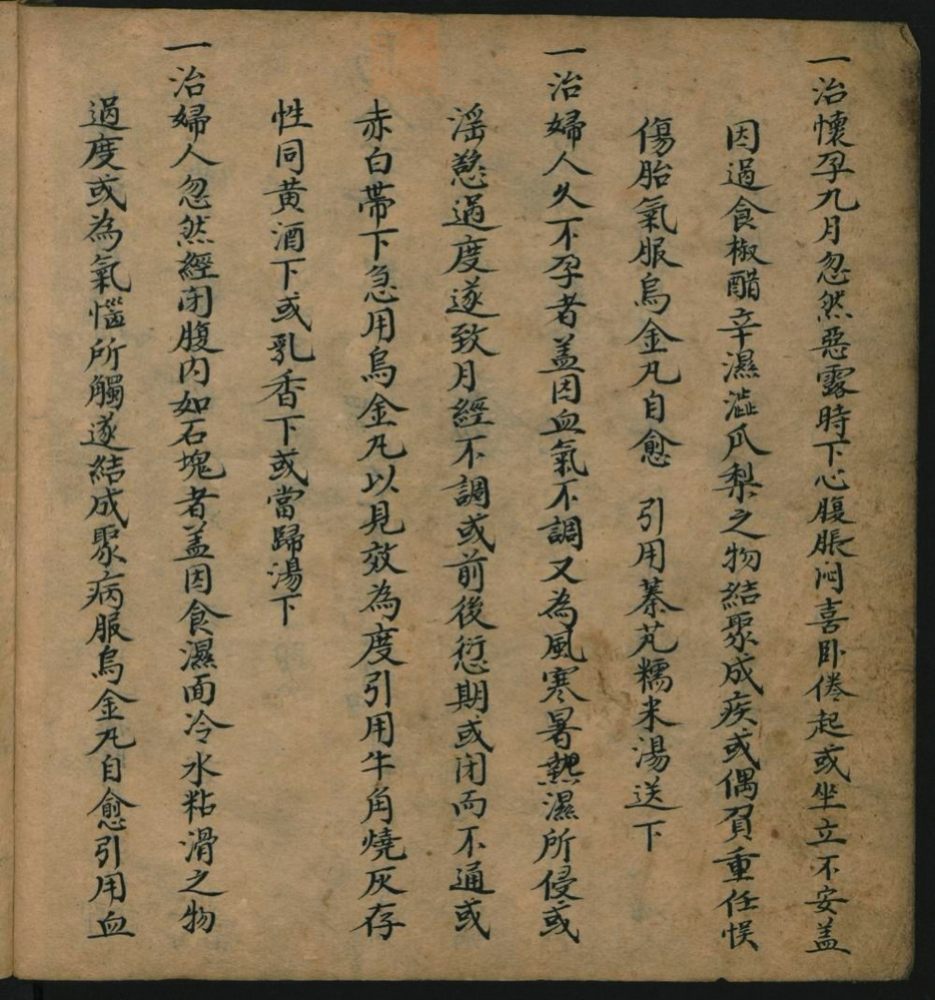 一治懷孕九月忽然惡露時下心腹脹悶喜卧倦起或坐立不安盖
因過食椒醋辛濕澁瓜梨之物結聚成疾或偶負重任悮
傷胎氣服烏金丸自愈 引用蓁艽糯米湯送下
一治婦人久不孕者盖因血氣不調又為風寒暑熱濕所侵或
滛慾過度遂致月經不調或前後愆期或闭而不通或
赤白帶下急用烏金丸以見效為度引用牛角燒灰存
性同黄酒下或乳香下或當歸湯下
一治婦人忽然經闭腹内如石塊者盖因食濕面冷水粘滑之物
過度或為氣惱所觸遂結成聚病服烏金丸自愈引用血